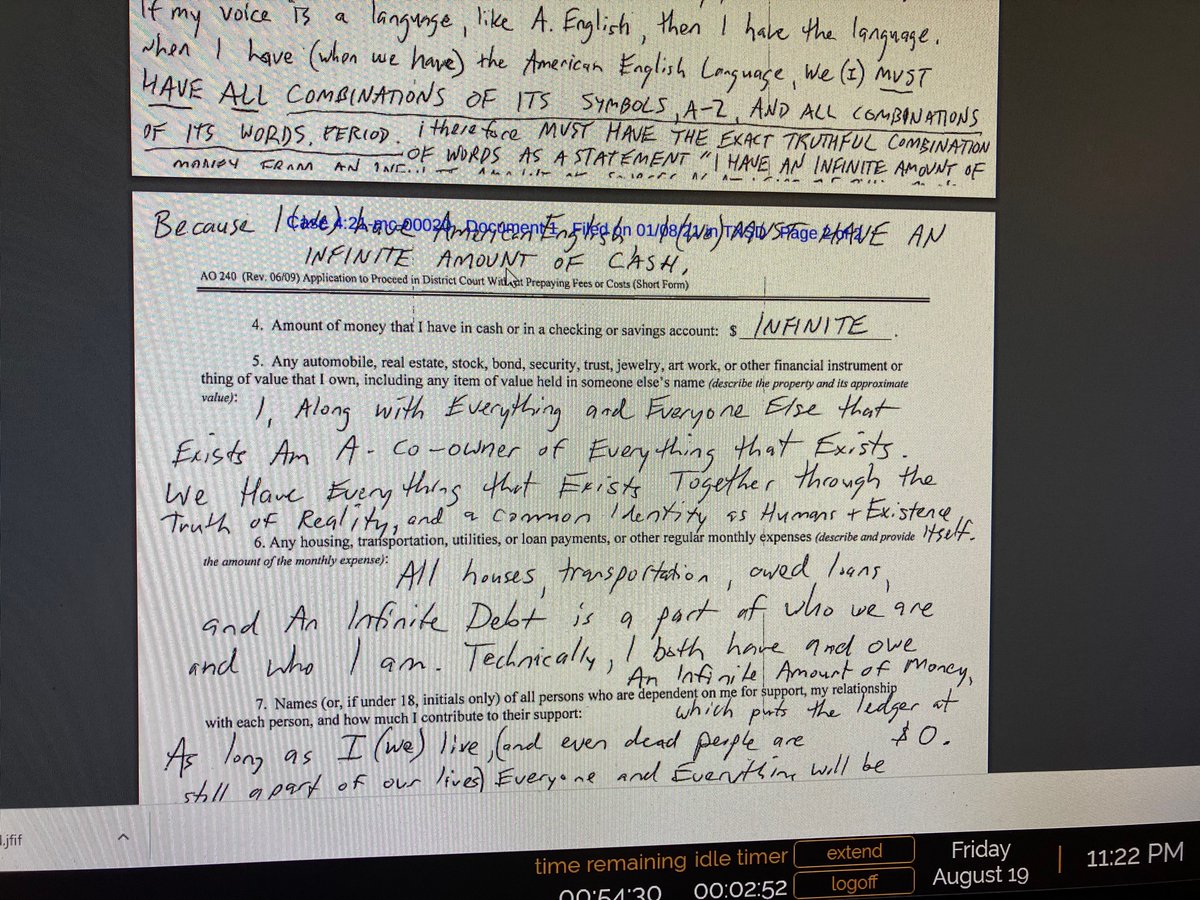 If my voice is a language, like A. English, then I have the language.
When I have (when we have) the American English Language, We (I) MUST
HAVE ALL COMBINATIONS OF ITS SYMBOLS, A-Z, AND ALL COMBINATIONS
OF ITS WORDS. PERIOD. i therefore MUST HAVE THE EXACT TRUTHFUL COMBINATION
OF WORDS AS A STATEMENT "I HAVE AN INFINITE AMOUNT OF
MONEY FROM AN
Because I (We) have American English, I (We) MUST HAVE AN
Case 4:21-mc-00020 Document 1 Filed on 01/08/21 in TXSD Page 2 of 2
INFINITE AMOUNT OF CASH,
AO 240 (Rev. 06/09) Application to Proceed in District Court Without Prepaying Fees or Costs (Short Form)
4. Amount of money that I have in cash or in a checking or savings account: $ INFINITE .
5. Any automobile, real estate, stock, bond, security, trust, jewelry, art work, or other financial instrument or
thing of value that I own, including any item of value held in someone else's name (describe the property and its approximate
value):
I, Along with Everything and Everyone Else that
Exists Am A - Co-owner of Everything that Exists.
We Have Everything that Exists Together through the
Truth of Reality, and a common Identity as Humans + Existence Itself.
6. Any housing, transportation, utilities, or loan payments, or other regular monthly expenses (describe and provide
the amount of the monthly expense):
All houses, transportation, owed loans,
and An Infinite Debt is a part of who we are
and who I am. Technically, I both have and owe
An Infinite Amount of Money,
7. Names (or, if under 18, initials only) of all persons who are dependent on me for support, my relationship
with each person, and how much I contribute to their support:
which puts the ledger at
$0.
As long as I (we) live, (and even dead people are
still a part of our lives) Everyone and Everything will be
.jfif
time remaining idle timer
extend
00:54:30 00:02:52
logoff
Friday
August 19
11:22 PM